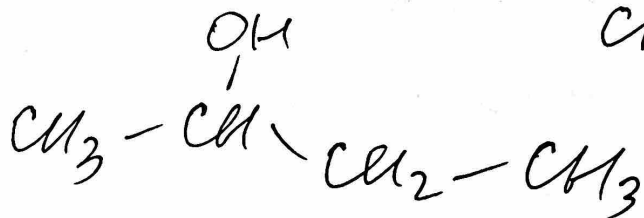 OH
CH3 - CH \ CH2 - CH3